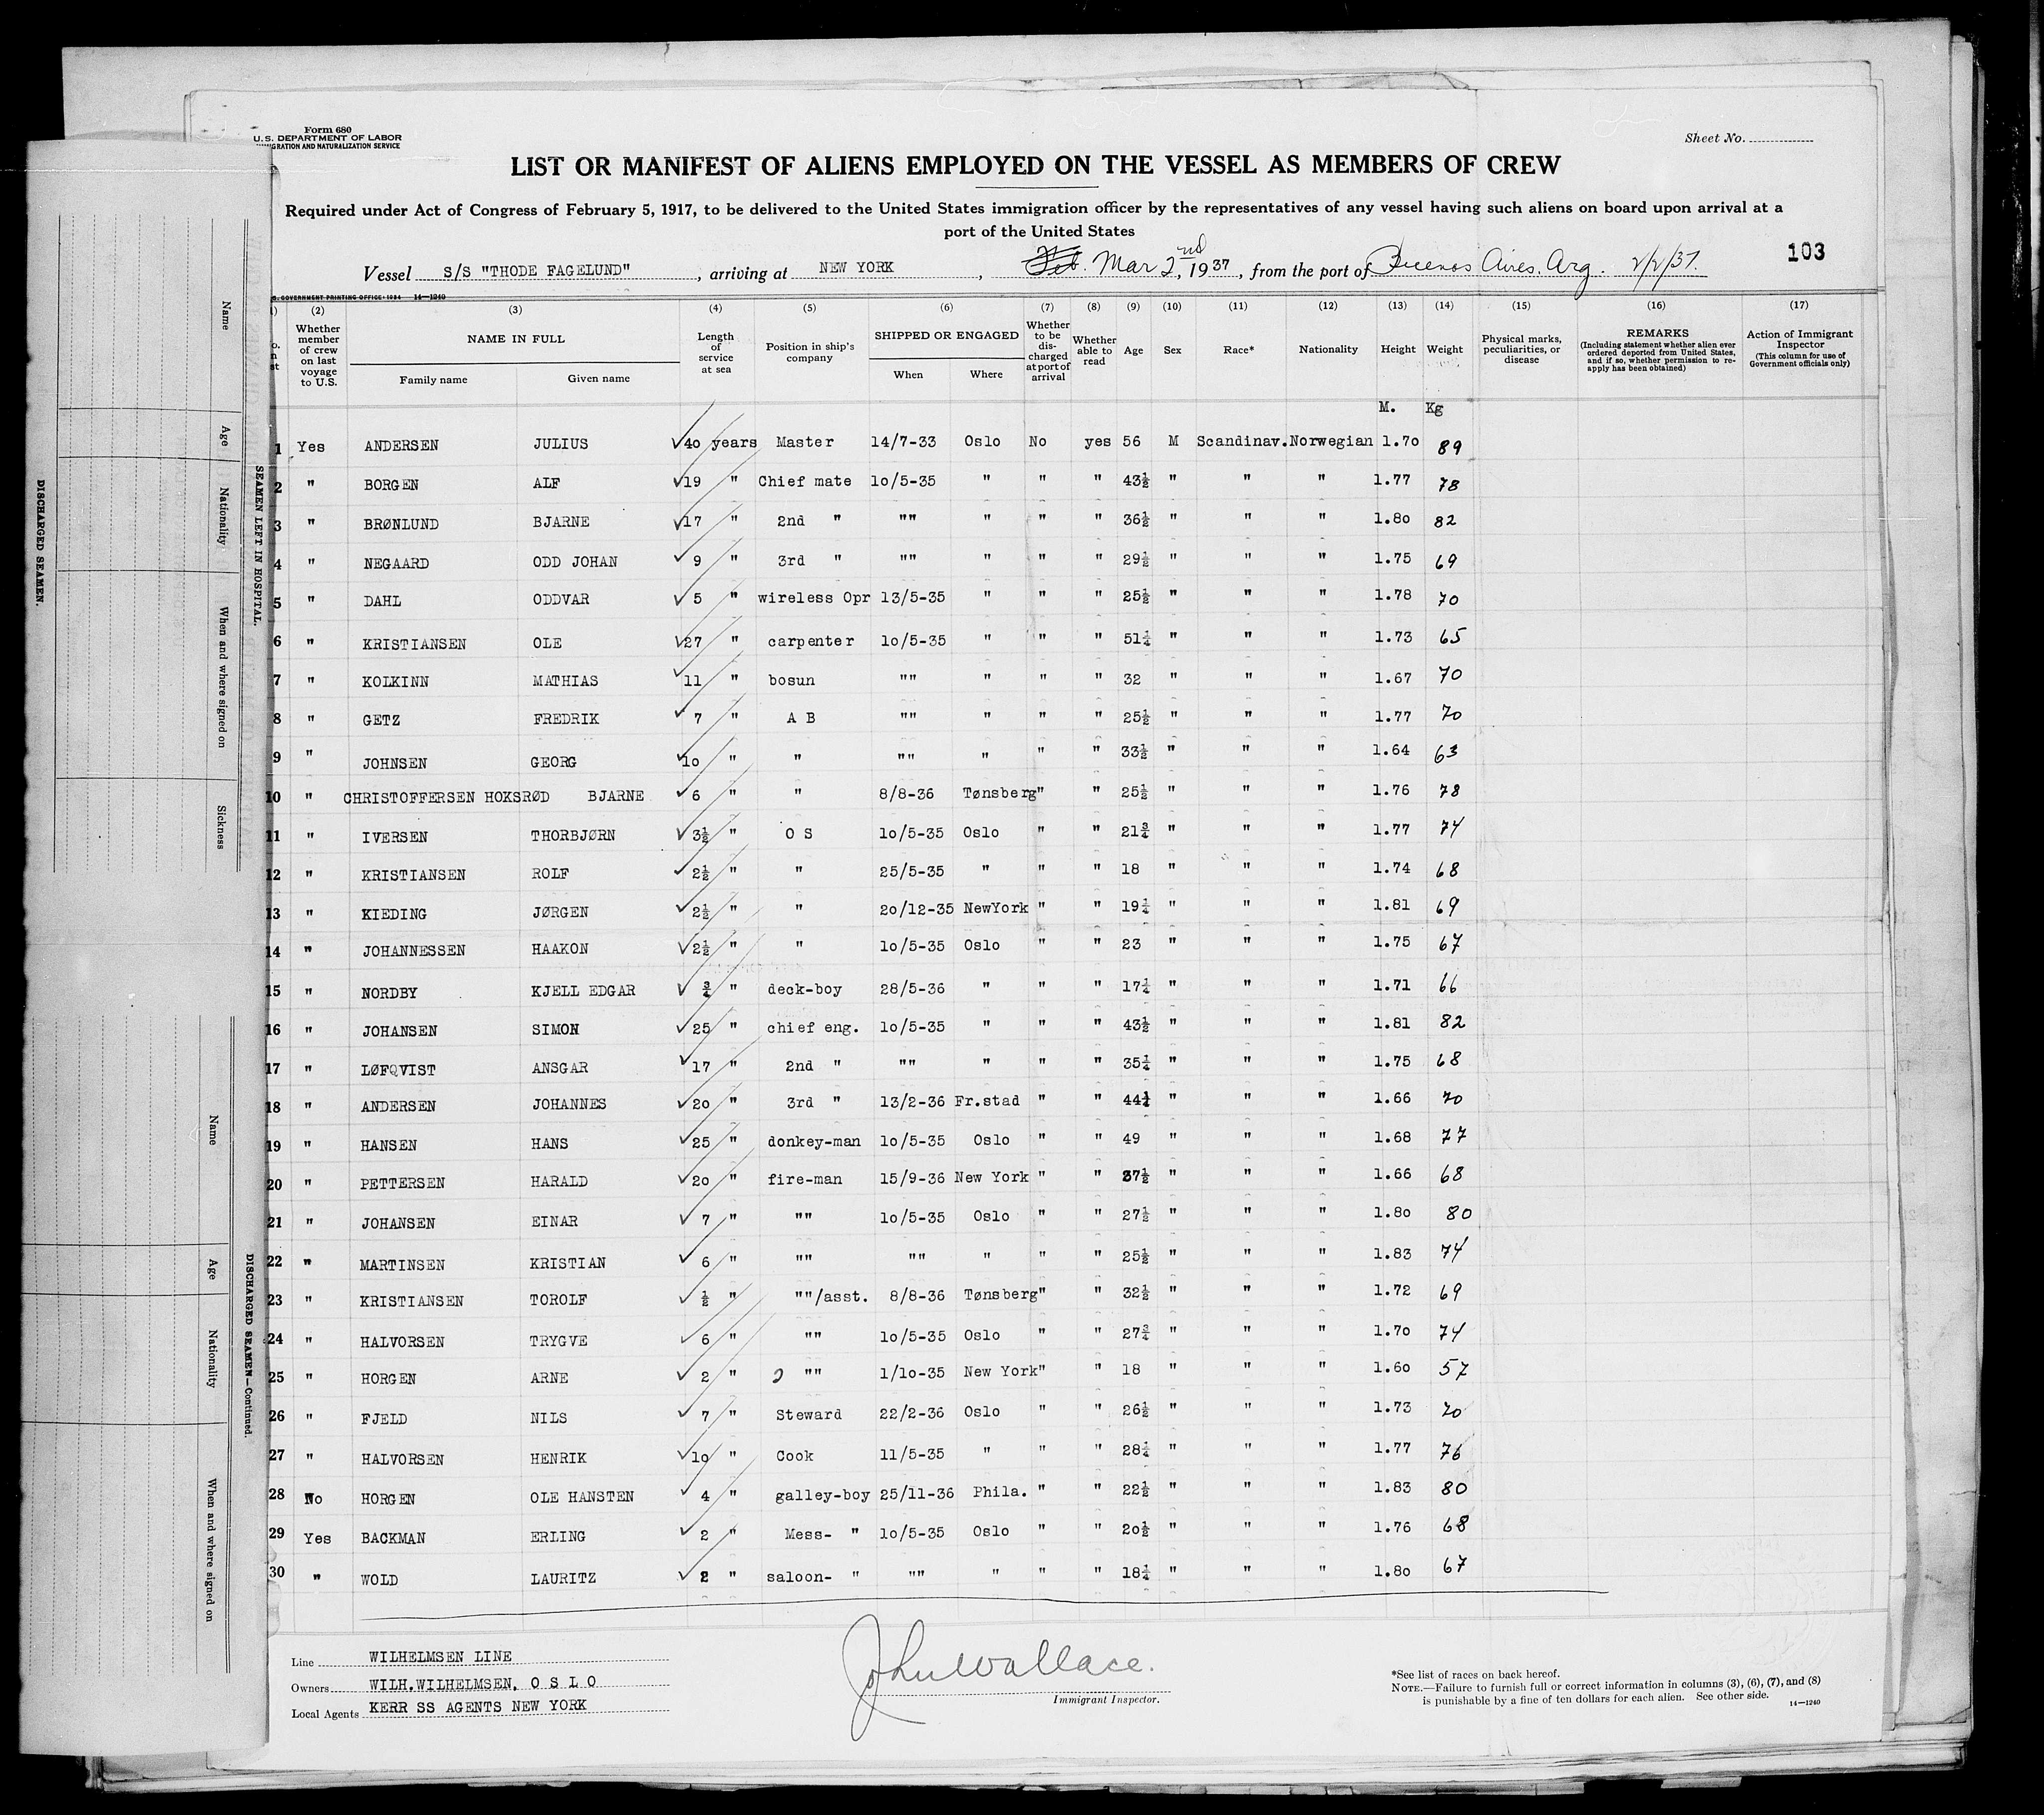 Form 680
U. S. DEPARTMENT OF LABOR
IMMIGRATION AND NATURALIZATION SERVICE
Sheet No.
LIST OR MANIFEST OF ALIENS EMPLOYED ON THE VESSEL AS MEMBERS OF CREW
Required under Act of Congress of February 5, 1917, to be delivered to the United States immigration officer by the representatives of any vessel having such aliens on board upon arrival at a
port of the United States
103
Vessel S/S "THODE FAGELUND", arriving at NEW YORK, Feb. Mar 2nd, 1937, from the port of Buenos Aires, Arg. 2/2/37.
U. S. GOVERNMENT PRINTING OFFICE: 1934 14—1240
(2) (3) (4) (5) (6) (7) (8) (9) (10) (11) (12) (13) (14) (15) (16) (17)
Whether member of crew on last voyage to U.S. NAME IN FULL Family name Given name Length of service at sea Position in ship's company SHIPPED OR ENGAGED When Where Whether to be discharged at port of arrival Whether able to read Age Sex Race* Nationality Height Weight Physical marks, peculiarities, or disease REMARKS (Including statement whether alien ever ordered deported from United States, and if so, whether permission to reapply has been obtained) Action of Immigrant Inspector (This column for use of Government officials only)
M. Kg
1 Yes ANDERSEN JULIUS 40 years Master 14/7-33 Oslo No yes 56 M Scandinav. Norwegian 1.70 89
2 " BORGEN ALF 19 " Chief mate 10/5-35 " " " 43½ " " " 1.77 78
3 " BRØNLUND BJARNE 17 " 2nd " "" " " " 36½ " " " 1.80 82
4 " NEGAARD ODD JOHAN 9 " 3rd " "" " " " 29½ " " " 1.75 69
5 " DAHL ODDVAR 5 " wireless Opr 13/5-35 " " " 25½ " " " 1.78 70
6 " KRISTIANSEN OLE 27 " carpenter 10/5-35 " " " 51¼ " " " 1.73 65
7 " KOLKINN MATHIAS 11 " bosun "" " " " 32 " " " 1.67 70
8 " GETZ FREDRIK 7 " A B "" " " " 25½ " " " 1.77 70
9 " JOHNSEN GEORG 10 " " "" " " " 33½ " " " 1.64 63
10 " CHRISTOFFERSEN HOKSRØD BJARNE 6 " " 8/8-36 Tønsberg " " 25½ " " " 1.76 78
11 " IVERSEN THORBJØRN 3½ " O S 10/5-35 Oslo " " 21¾ " " " 1.77 74
12 " KRISTIANSEN ROLF 2½ " " 25/5-35 " " " 18 " " " 1.74 68
13 " KIEDING JØRGEN 2½ " " 20/12-35 NewYork " " 19¼ " " " 1.81 69
14 " JOHANNESSEN HAAKON 2½ " " 10/5-35 Oslo " " 23 " " " 1.75 67
15 " NORDBY KJELL EDGAR ¾ " deck-boy 28/5-36 " " " 17¼ " " " 1.71 66
16 " JOHANSEN SIMON 25 " chief eng. 10/5-35 " " " 43½ " " " 1.81 82
17 " LØFQVIST ANSGAR 17 " 2nd " "" " " " 35¼ " " " 1.75 68
18 " ANDERSEN JOHANNES 20 " 3rd " 13/2-36 Fr.stad " " 44¼ " " " 1.66 70
19 " HANSEN HANS 25 " donkey-man 10/5-35 Oslo " " 49 " " " 1.68 77
20 " PETTERSEN HARALD 20 " fire-man 15/9-36 New York " " 37½ " " " 1.66 68
21 " JOHANSEN EINAR 7 " "" 10/5-35 Oslo " " 27½ " " " 1.80 80
22 " MARTINSEN KRISTIAN 6 " "" "" " " " 25½ " " " 1.83 74
23 " KRISTIANSEN TOROLF ½ " ""/asst. 8/8-36 Tønsberg " " 32½ " " " 1.72 69
24 " HALVORSEN TRYGVE 6 " "" 10/5-35 Oslo " " 27¾ " " " 1.70 74
25 " HORGEN ARNE 2 " "" 1/10-35 New York " " 18 " " " 1.60 57
26 " FJELD NILS 7 " Steward 22/2-36 Oslo " " 26½ " " " 1.73 70
27 " HALVORSEN HENRIK 10 " Cook 11/5-35 " " " 28¼ " " " 1.77 76
28 No HORGEN OLE HANSTEN 4 " galley-boy 25/11-36 Phila. " " 22½ " " " 1.83 80
29 Yes BACKMAN ERLING 2 " Mess- " 10/5-35 Oslo " " 20½ " " " 1.76 68
30 " WOLD LAURITZ 2 " saloon- " "" " " " 18¼ " " " 1.80 67
Line WILHELMSEN LINE
Owners WILH.WILHELMSEN, O S L O
Local Agents KERR SS AGENTS NEW YORK
John Wallace.
Immigrant Inspector.
*See list of races on back hereof.
NOTE.—Failure to furnish full or correct information in columns (3), (6), (7), and (8)
is punishable by a fine of ten dollars for each alien. See other side.
14—1240
DISCHARGED SEAMEN.
SEAMEN LEFT IN HOSPITAL.
Name
Age
Nationality
When and where signed on
Sickness
DISCHARGED SEAMEN—Continued.
Name
Age
Nationality
When and where signed on